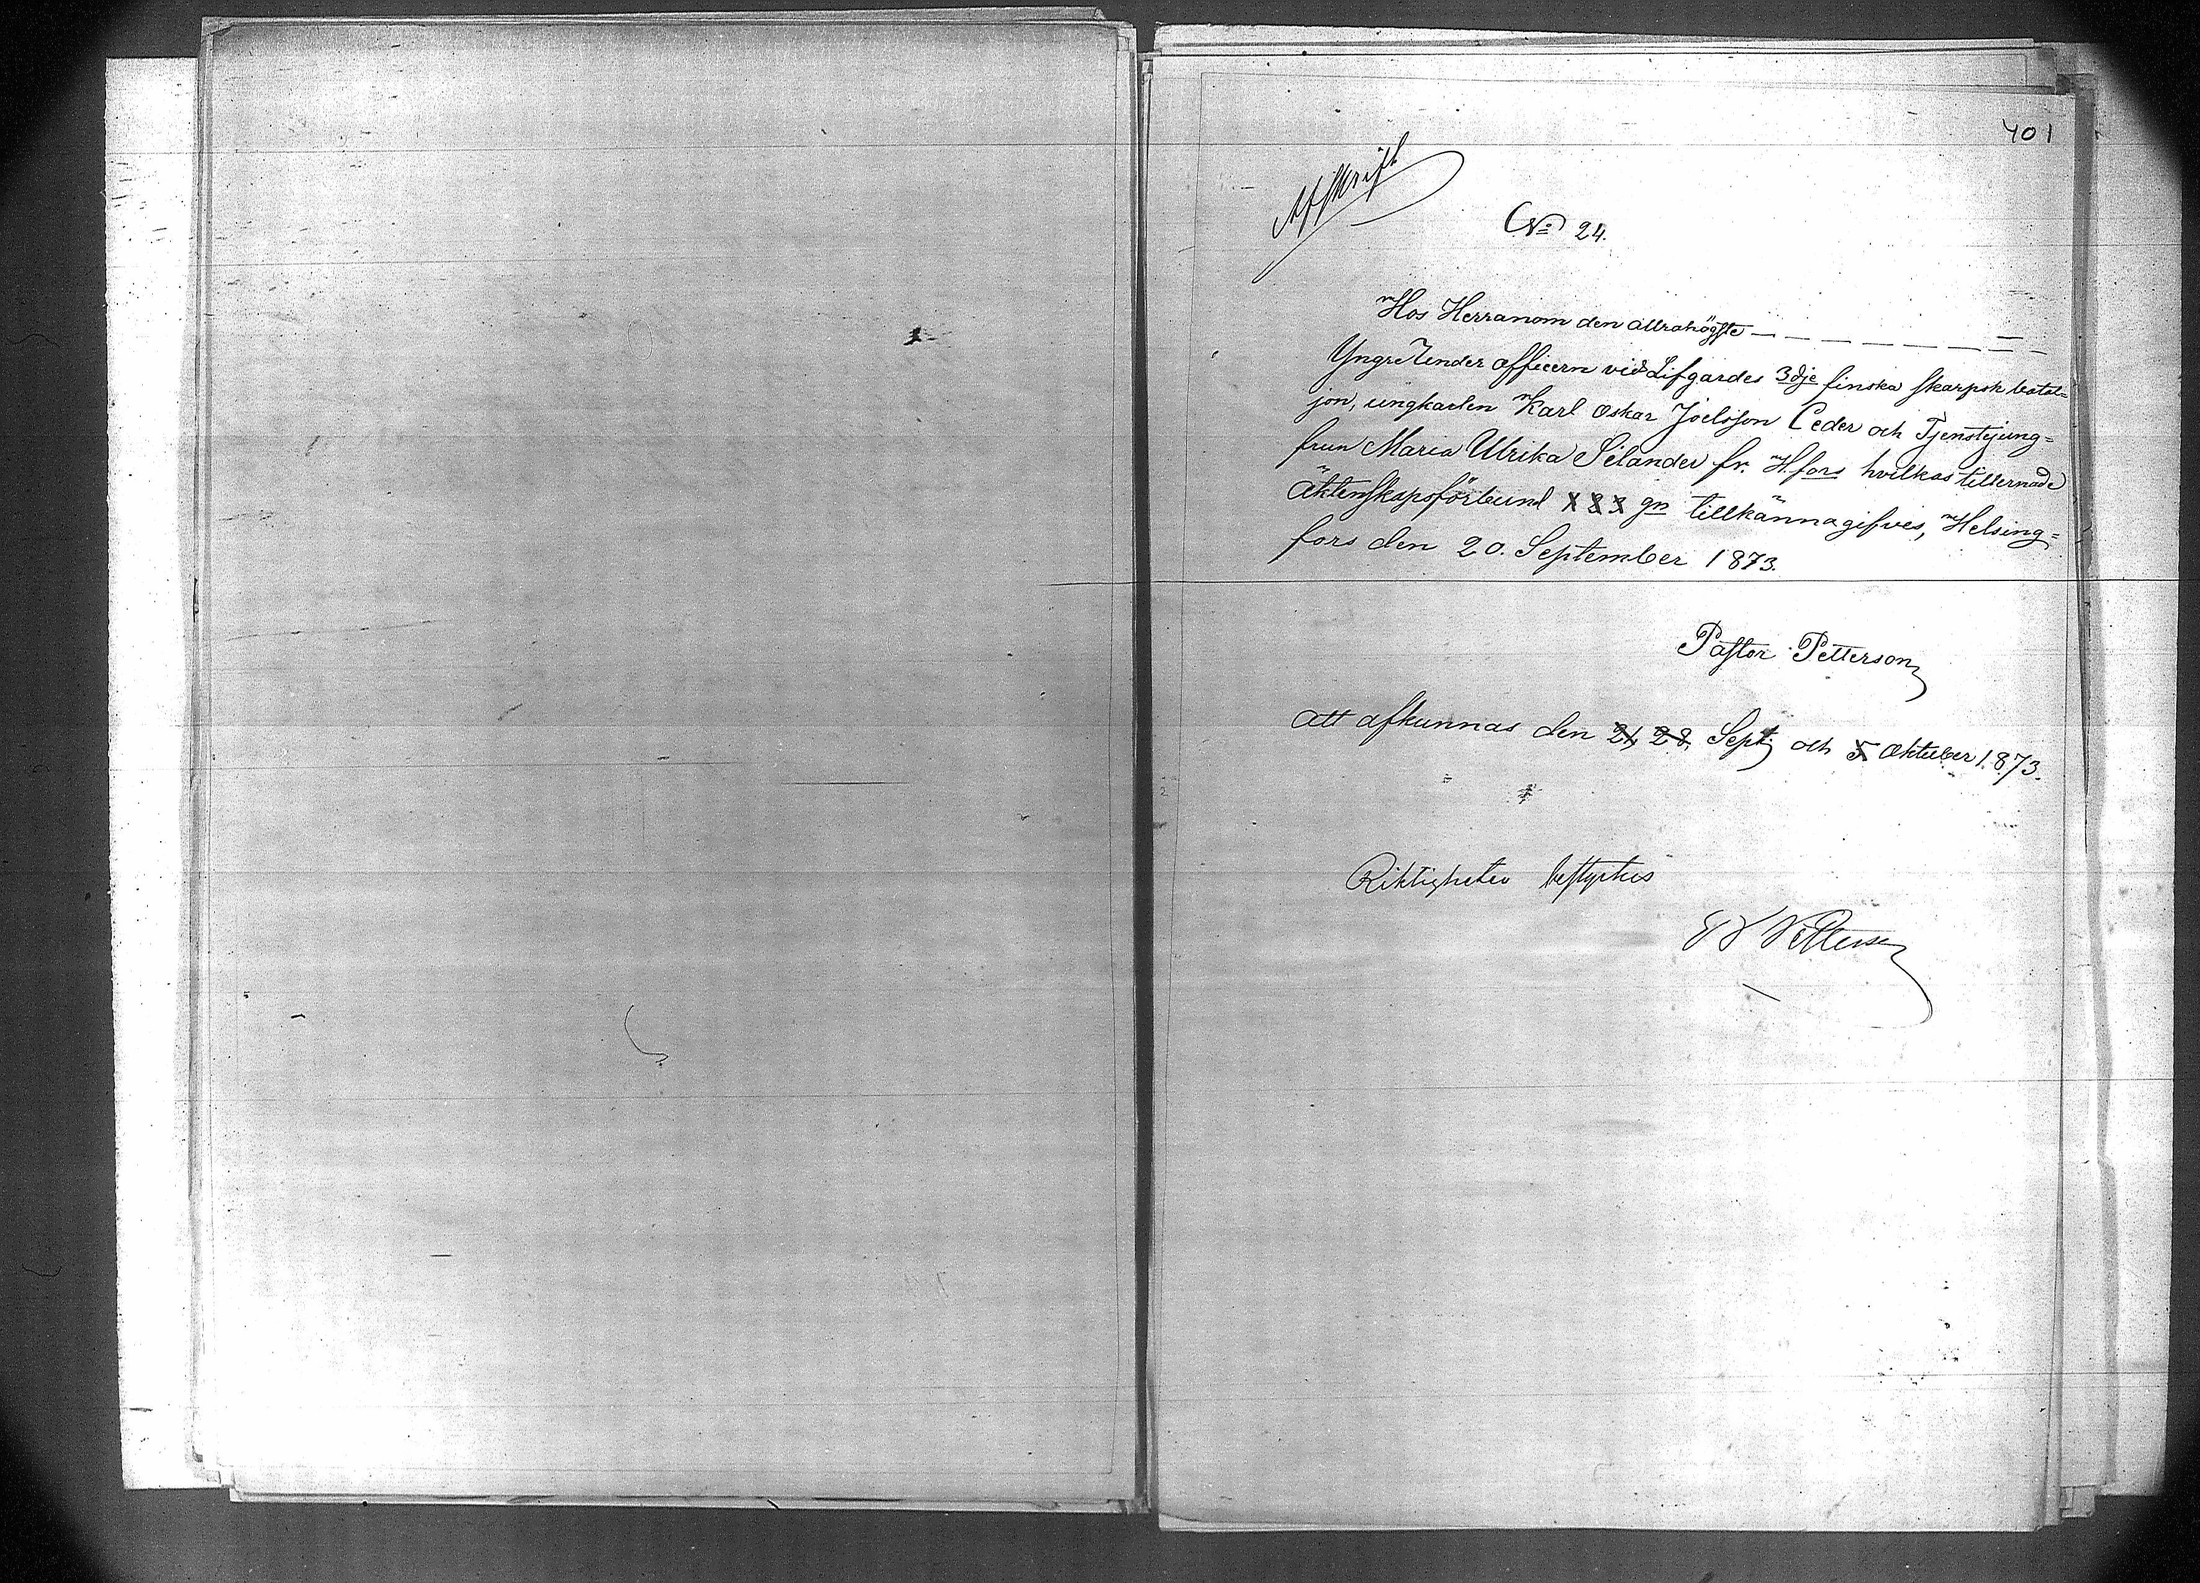 401
Afskrift
No 24.
Hos Herranom den allrahögste — — — — — —
Yngre Under officern vid Lifgardes 3dje finska skarpsk batal=
jon, ungkarlen Karl Oskar Joelsson Ceder och Tjenstejung=
frun Maria Ulrika Selander fr. H.fors hvilkas tillernade
äktenskapsförbund X X X gn tillkännagifves, Helsing=
fors den 20. September 1873.
Pastor Petterson
Att afkunnas den 21, 28, Sept, och 5 Oktober 1873.
Riktigheten bestyrkes
Petterson